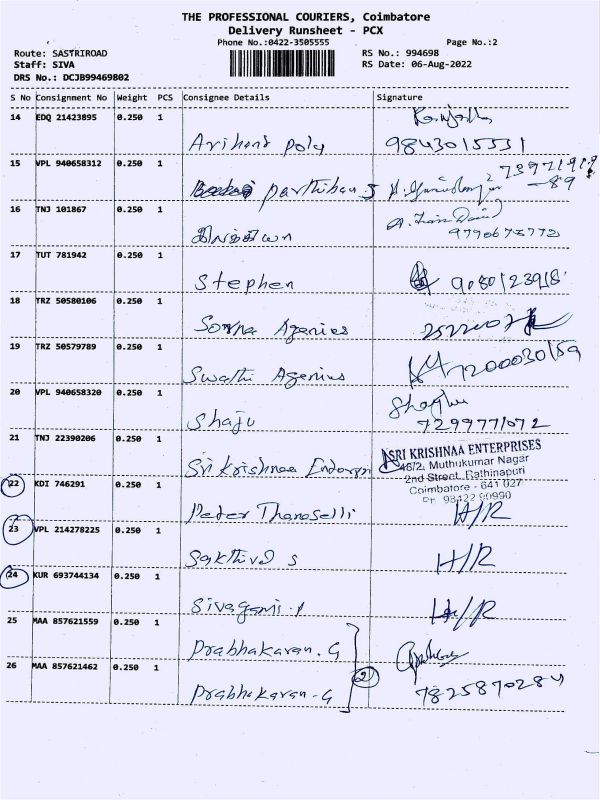 THE PROFESSIONAL COURIERS, Coimbatore
Delivery Runsheet - PCX
Phone No.:0422-3505555 Page No.:2
Route: SASTRIROAD RS No.: 994698
Staff: SIVA RS Date: 06-Aug-2022
DRS No.: DCJB99469802
S No Consignment No Weight PCS Consignee Details Signature
14 EDQ 21423895 0.250 1
Arihant poly 9843015331
15 VPL 940658312 0.250 1
parthiban S
16 TNJ 101867 0.250 1
17 TUT 781942 0.250 1
Stephen
18 TRZ 50580106 0.250 1
Agenies
19 TRZ 50579789 0.250 1
Swathi Agenies
20 VPL 940658320 0.250 1
Shaju
7299771072
21 TNJ 22390206 0.250 1
Sri Krishnaa
SRI KRISHNAA ENTERPRISES
46/2, Muthukumar Nagar
2nd Street, Rathinapuri
Coimbatore - 641 027
22 KDI 746291 0.250 1
Peter H/R
23 VPL 214278225 0.250 1
Sakthivel S H/R
24 KUR 693744134 0.250 1
Sivagami. H/R
25 MAA 857621559 0.250 1
Prabhakaran. G
26 MAA 857621462 0.250 1
Prabhakaran - G 2 7825870284